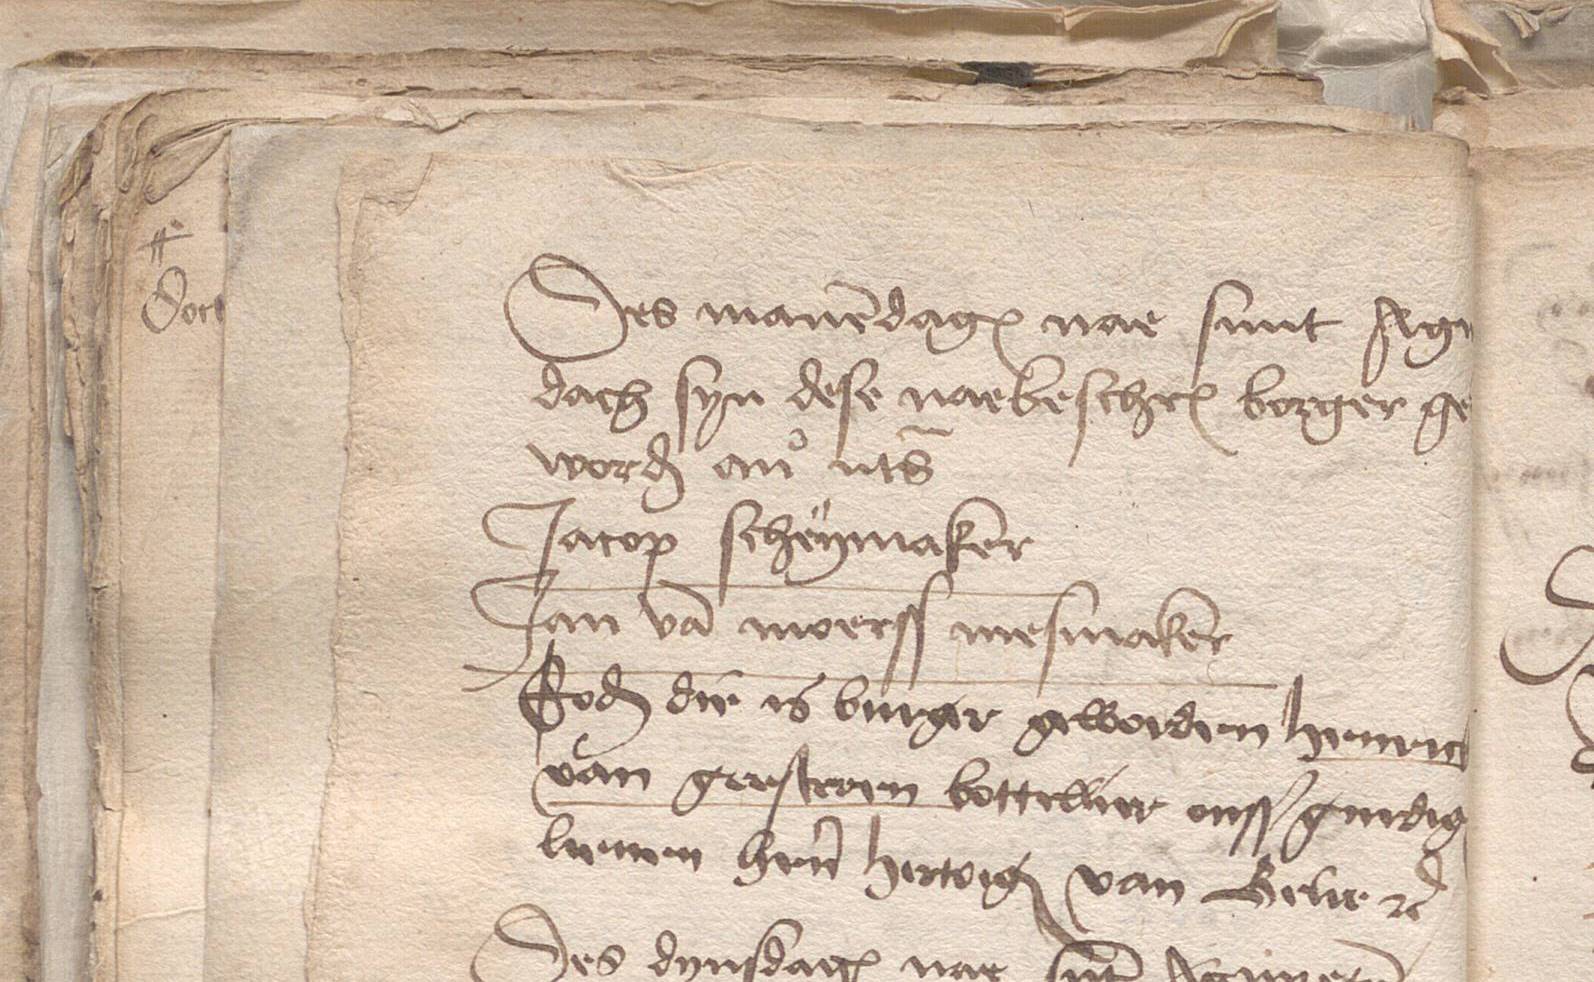 Dort
Des manēdags nae sunt Agn
dach syn dese naebeschr borger ge
word an° uts
Jacop scheymaker
Jan vā moerss mesmaker
Eod die is burger geworden henric
van geesteren bottellier onss gnedig
lieuen hern hertoig van Gelre
Des dynsdach nae sunt